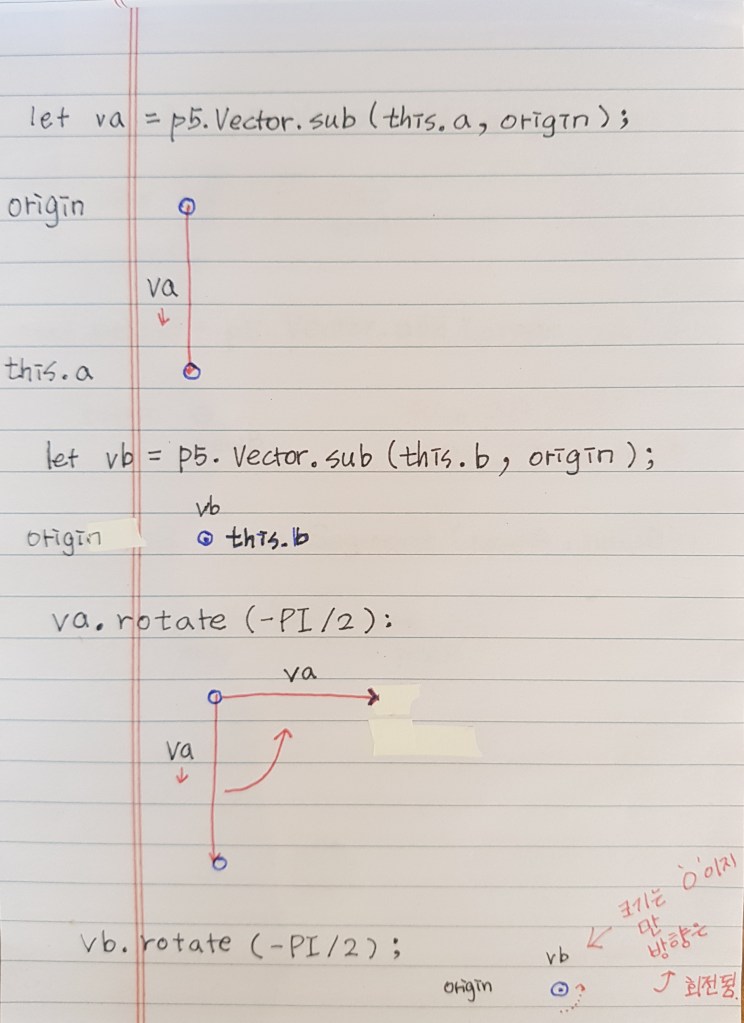 let va = p5.Vector.sub (this.a, origin);
origin
va
this.a
let vb = p5. Vector.sub (this.b, origin);
vb
origin this.b
va.rotate (-PI/2):
va
va
vb.rotate (-PI/2);
origin
vb
크기는 '0'이지
만
방향은
회전됨.